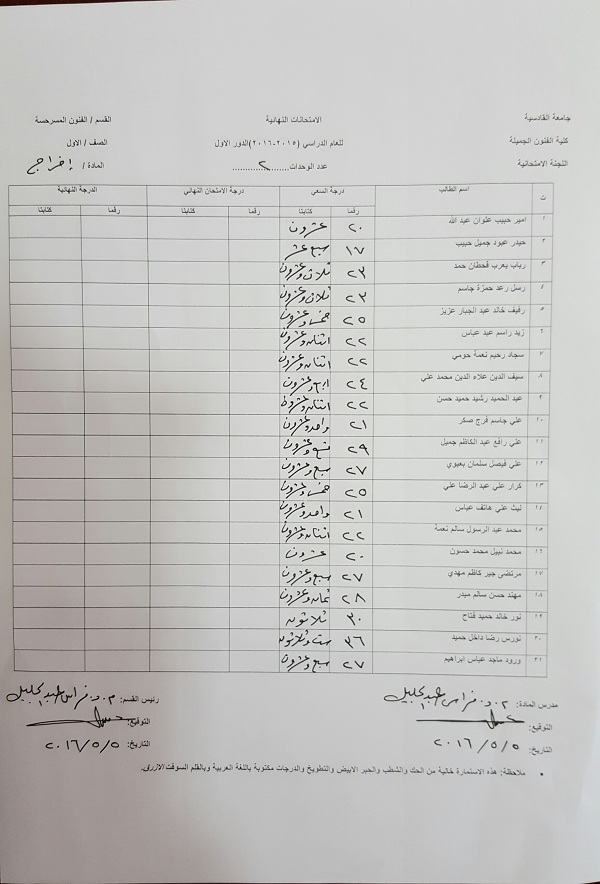 جامعة القادسية الامتحانات النهائية القسم / الفنون المسرحية
كلية الفنون الجميلة للعام الدراسي (٢٠١٥-٢٠١٦)الدور الاول الصف / الاول
اللجنة الامتحانية عدد الوحدات.......٢............ المادة / إخراج
ت اسم الطالب درجة السعي درجة الامتحان النهائي الدرجة النهائية
رقما كتابتا رقما كتابتا رقما كتابتا
١ امير حبيب علوان عبد الله ٢٠ عشرون
٢ حيدر عبود جميل حبيب ١٧ سبع عشر
٣ رباب يعرب قحطان حمد ٢٣ ثلاث وعشرون
٤ رسل رعد حمزة جاسم ٢٣ ثلاث وعشرون
٥ رفيف خالد عبد الجبار عزيز ٢٥ خمس وعشرون
٦ زيد راسم عبد عباس ٢٢ اثنان وعشرون
٧ سجاد رحيم نعمة حومي ٢٢ اثنان وعشرون
٨ سيف الدين علاء الدين محمد علي ٢٤ اربع وعشرون
٩ عبد الحميد رشيد حميد حسن ٢٢ اثنان وعشرون
١٠ علي جاسم فرج صكر ٢١ واحد وعشرون
١١ علي رافع عبد الكاظم جميل ٢٩ تسع وعشرون
١٢ علي فيصل سلمان بعيوي ٢٧ سبع وعشرون
١٣ كرار علي عبد الرضا علي ٢٥ خمس وعشرون
١٤ ليث علي هاتف عباس ٢١ واحد وعشرون
١٥ محمد عبد الرسول سالم نعمة ٢٢ اثنان وعشرون
١٦ محمد نبيل محمد حسون ٢٠ عشرون
١٧ مرتضى جبر كاظم مهدي ٢٧ سبع وعشرون
١٨ مهند حسن سالم ميدر ٢٨ ثمان وعشرون
١٩ نور خالد حميد فتاح ٣٠ ثلاثون
٢٠ نورس رضا داخل حميد ٣٦ ست وثلاثون
٢١ ورود ماجد عباس ابراهيم ٢٧ سبع وعشرون
مدرس المادة: م.د. فراس عبد الجليل رئيس القسم: م.د. فراس عبد الجليل
التوقيع: التوقيع:
التاريخ: ٢٠١٦/٥/٥ التاريخ: ٢٠١٦/٥/٥
• ملاحظة: هذه الاستمارة خالية من الحك والشطب والحبر الابيض والتطويخ والدرجات مكتوبة باللغة العربية وبالقلم السوفت الازرق.